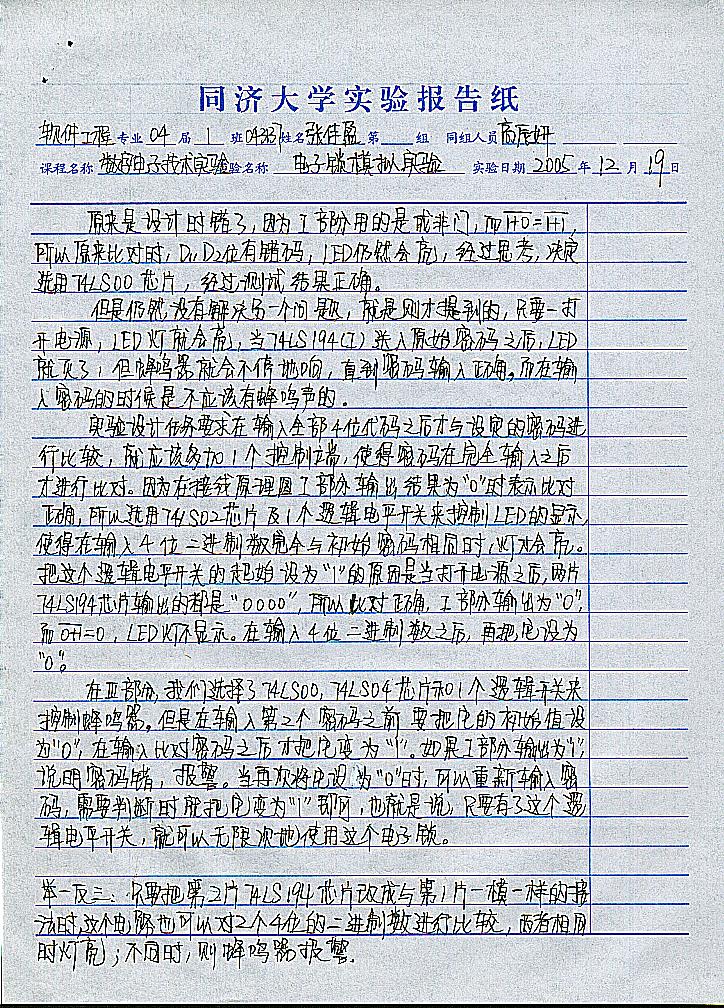 同济大学实验报告纸
软件工程 专业 04 届 1 班 043137 姓名 张佳盈 第 组 同组人员 高辰妍
课程名称 数字电子技术实验 验名称 电子锁模拟实验 实验日期 2005 年 12 月 19 日
原来是设计时错了,因为I部分用的是或非门,而1+0=1+1,
所以原来比对时,D1,D2位有错码,LED仍然会亮,经过思考,决定
选用74LS00芯片,经过测试结果正确。
但是仍然没有解决另一个问题,就是刚才提到的,只要一打
开电源,LED灯就会亮,当74LS194(I)送入原始密码之后,LED
就灭了,但蜂鸣器就会不停地响,直到密码输入正确。而在输
入密码的时候是不应该有蜂鸣声的。
实验设计任务要求在输入全部4位代码之后才与设定的密码进
行比较,就应该多加1个控制端,使得密码在完全输入之后
才进行比对。因为在接线原理图I部分输出结果为"0"时表示比对
正确,所以选用74LS02芯片及1个逻辑电平开关来控制LED的显示,
使得在输入4位二进制数完全与初始密码相同时,灯才会亮。
把这个逻辑电平开关的起始设为"1"的原因是当打开电源之后,两片
74LS194芯片输出的都是"0000",所以比对正确,I部分输出为"0",
而0+1=0,LED灯不显示。在输入4位二进制数之后,再把它设为
"0"。
在III部分,我们选择了74LS00,74LS04芯片和1个逻辑开关来
控制蜂鸣器。但是在输入第2个密码之前要把它的初始值设
为"0",在输入比对密码之后才把它变为"1"。如果I部分输出为"1",
说明密码错,报警。当再次将它设为"0"时,可以重新输入密
码,需要判断时就把它变为"1"即可,也就是说,只要有了这个逻
辑电平开关,就可以无限次地使用这个电子锁。
举一反三:只要把第2片74LS194芯片改成与第1片一模一样的接
法时,这个电路也可以对2个4位的二进制数进行比较,两者相同
时灯亮;不同时,则蜂鸣器报警.